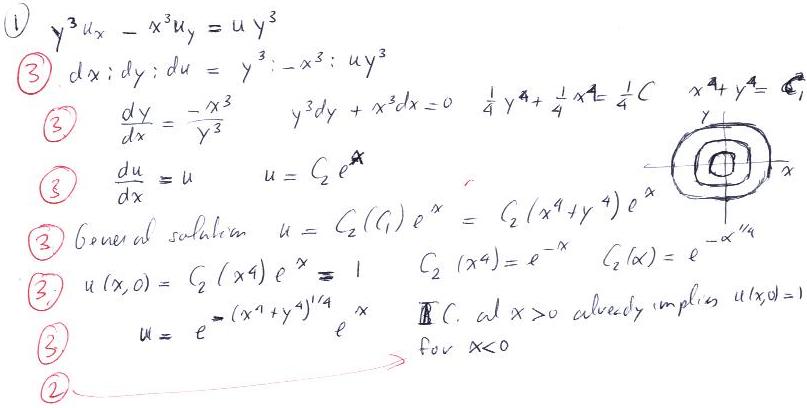 ① y³ uₓ – x³ u_y = u y³
③ dx : dy : du = y³ : –x³ : uy³
③ dy/dx = –x³/y³   y³dy + x³dx = 0   ¼ y⁴ + ¼ x⁴ = ¼ C   x⁴ + y⁴ = C₁
y
x
③ du/dx = u   u = C₂ eˣ
③ General solution u = C₂(C₁) eˣ = C₂(x⁴+y⁴) eˣ
③ u(x,0) = C₂(x⁴) eˣ = 1   C₂(x⁴) = e⁻ˣ   C₂(α) = e^(–α^(1/4))
③ u = e^(–(x⁴+y⁴)^(1/4)) eˣ   I C. at x>0 already implies u(x,0)=1
for x<0
②